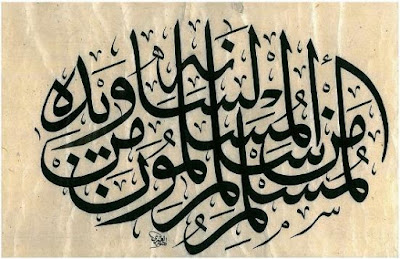 المسلم من سلم المسلمون من لسانه ويده